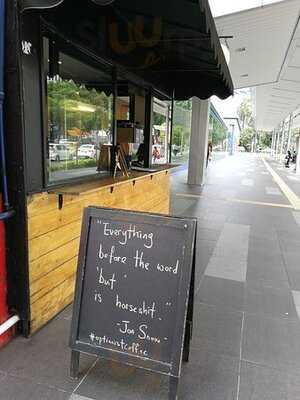 "Everything
before the word
'but'
is horseshit."
-Jon Snow
#optimistcoffee